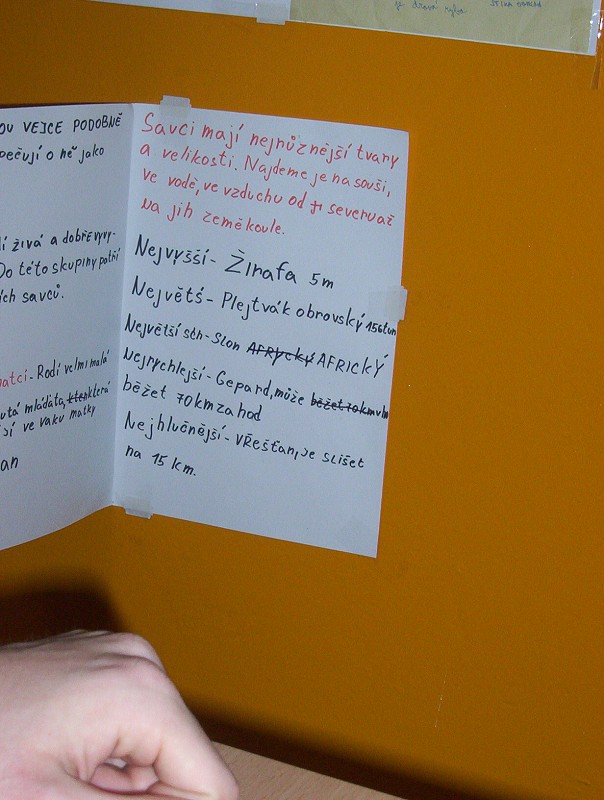 je dravá ryba
OU VEJCE PODOBNĚ
pečují o ně jako
í živá a dobře vyvy-
Do této skupiny patří
ích savců.
natci - Rodí velmi malá
utá mláďata, která
sí ve vaku matky
an
Savci mají nejrůznější tvary
a velikosti. Najdeme je na souši,
ve vodě, ve vzduchu od severu až
na jih zeměkoule.
Nejvyšší - Žirafa 5m
Největší - Plejtvák obrovský 156tun
Největší sch - Slon AFRyckÝ AFRICKÝ
Nejrychlejší - Gepard, může běžet 70km
běžet 70km za hod
Nejhlučnější - VŘEŠŤan, je slišet
na 15 km.